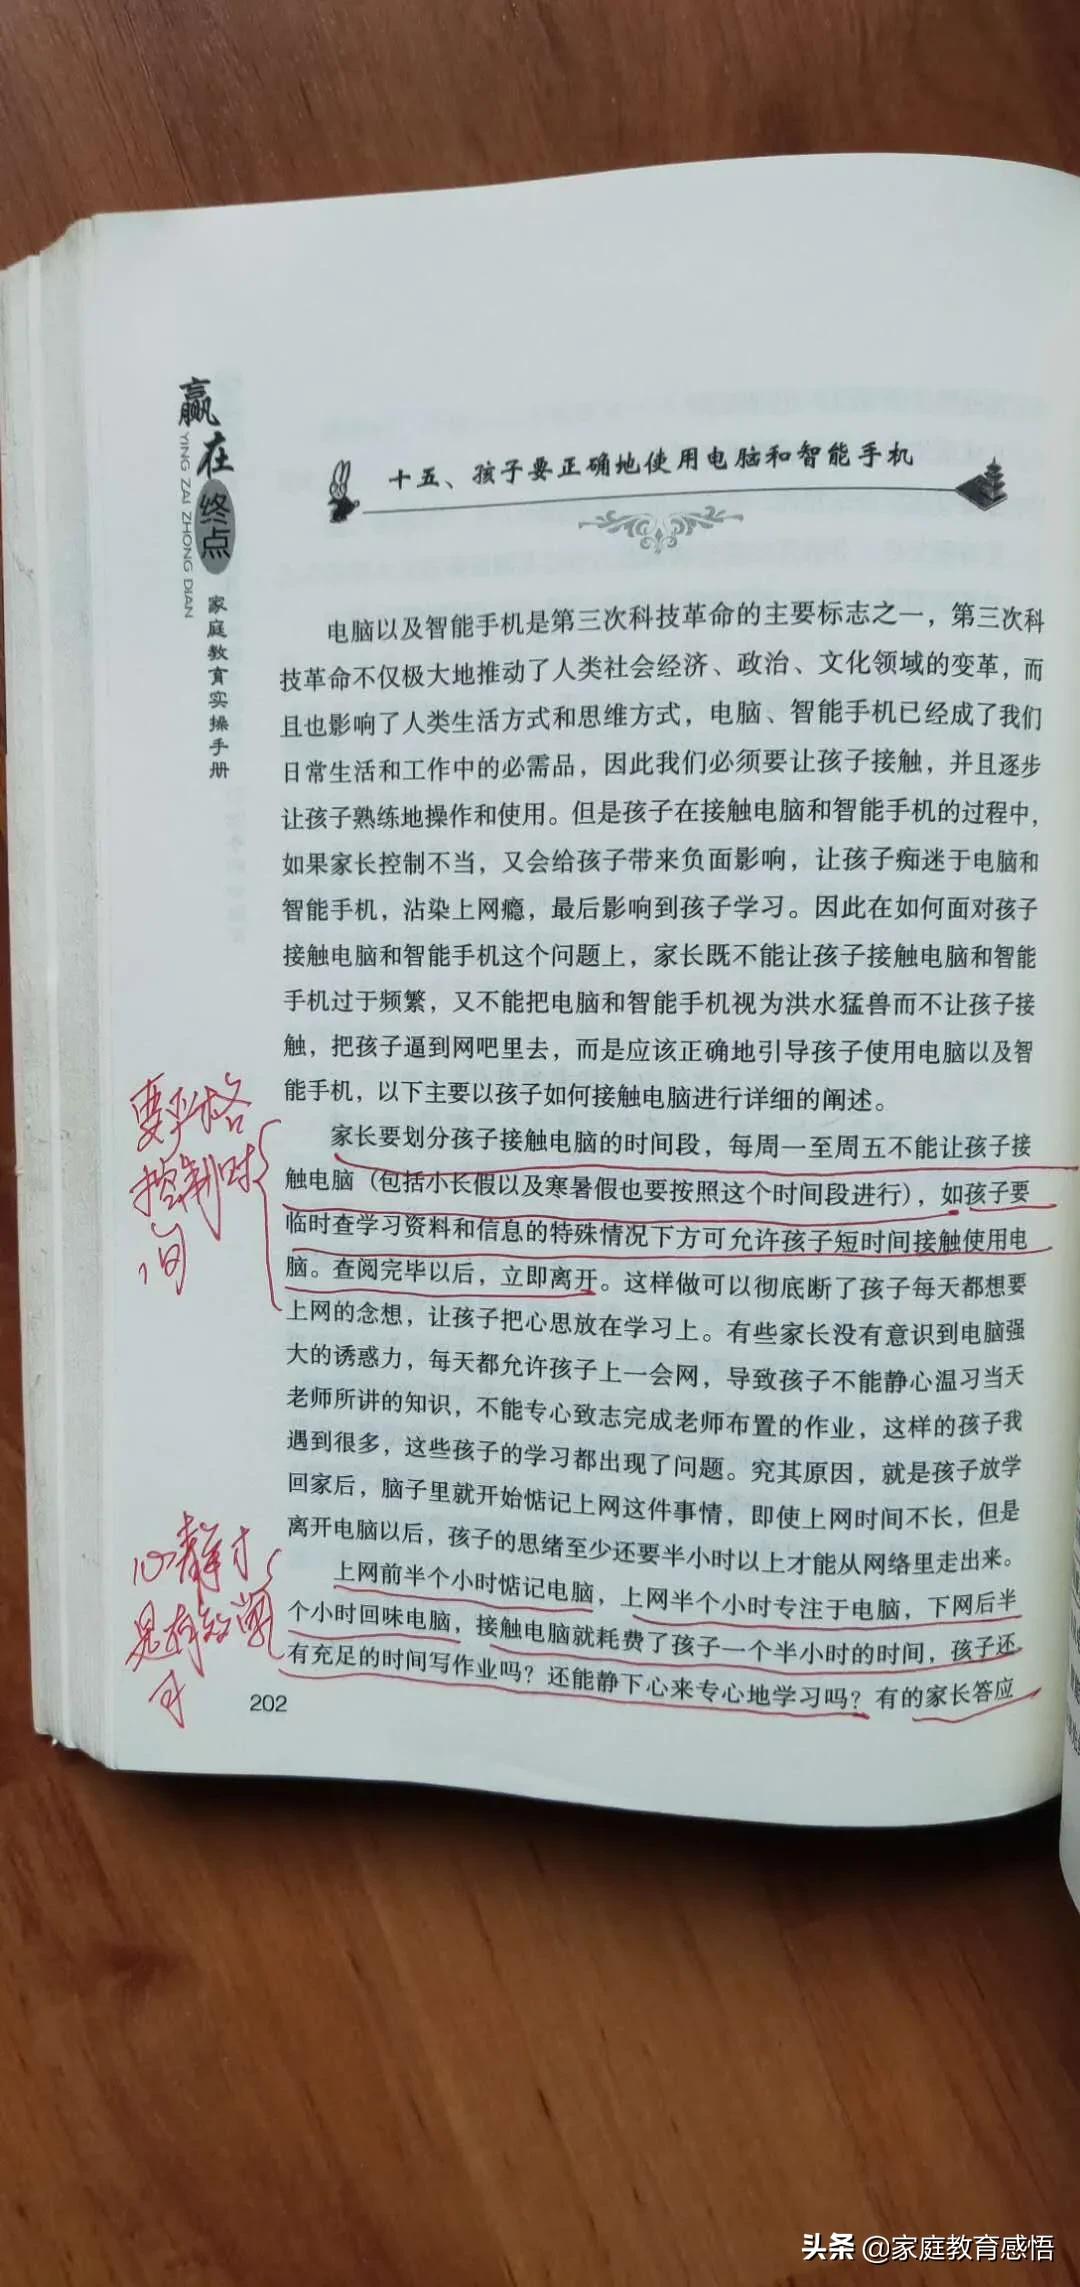 赢在终点
YING ZAI ZHONG DIAN
家庭教育实操手册
十五、孩子要正确地使用电脑和智能手机
电脑以及智能手机是第三次科技革命的主要标志之一，第三次科
技革命不仅极大地推动了人类社会经济、政治、文化领域的变革，而
且也影响了人类生活方式和思维方式，电脑、智能手机已经成了我们
日常生活和工作中的必需品，因此我们必须要让孩子接触，并且逐步
让孩子熟练地操作和使用。但是孩子在接触电脑和智能手机的过程中，
如果家长控制不当，又会给孩子带来负面影响，让孩子痴迷于电脑和
智能手机，沾染上网瘾，最后影响到孩子学习。因此在如何面对孩子
接触电脑和智能手机这个问题上，家长既不能让孩子接触电脑和智能
手机过于频繁，又不能把电脑和智能手机视为洪水猛兽而不让孩子接
触，把孩子逼到网吧里去，而是应该正确地引导孩子使用电脑以及智
能手机，以下主要以孩子如何接触电脑进行详细的阐述。
要严格
控制时
间
家长要划分孩子接触电脑的时间段，每周一至周五不能让孩子接
触电脑（包括小长假以及寒暑假也要按照这个时间段进行），如孩子要
临时查学习资料和信息的特殊情况下方可允许孩子短时间接触使用电
脑。查阅完毕以后，立即离开。这样做可以彻底断了孩子每天都想要
上网的念想，让孩子把心思放在学习上。有些家长没有意识到电脑强
大的诱惑力，每天都允许孩子上一会网，导致孩子不能静心温习当天
老师所讲的知识，不能专心致志完成老师布置的作业，这样的孩子我
遇到很多，这些孩子的学习都出现了问题。究其原因，就是孩子放学
回家后，脑子里就开始惦记上网这件事情，即使上网时间不长，但是
离开电脑以后，孩子的思绪至少还要半小时以上才能从网络里走出来。
心静才
是有效学
习
上网前半个小时惦记电脑，上网半个小时专注于电脑，下网后半
个小时回味电脑，接触电脑就耗费了孩子一个半小时的时间，孩子还
有充足的时间写作业吗？还能静下心来专心地学习吗？有的家长答应
202
头条 @家庭教育感悟